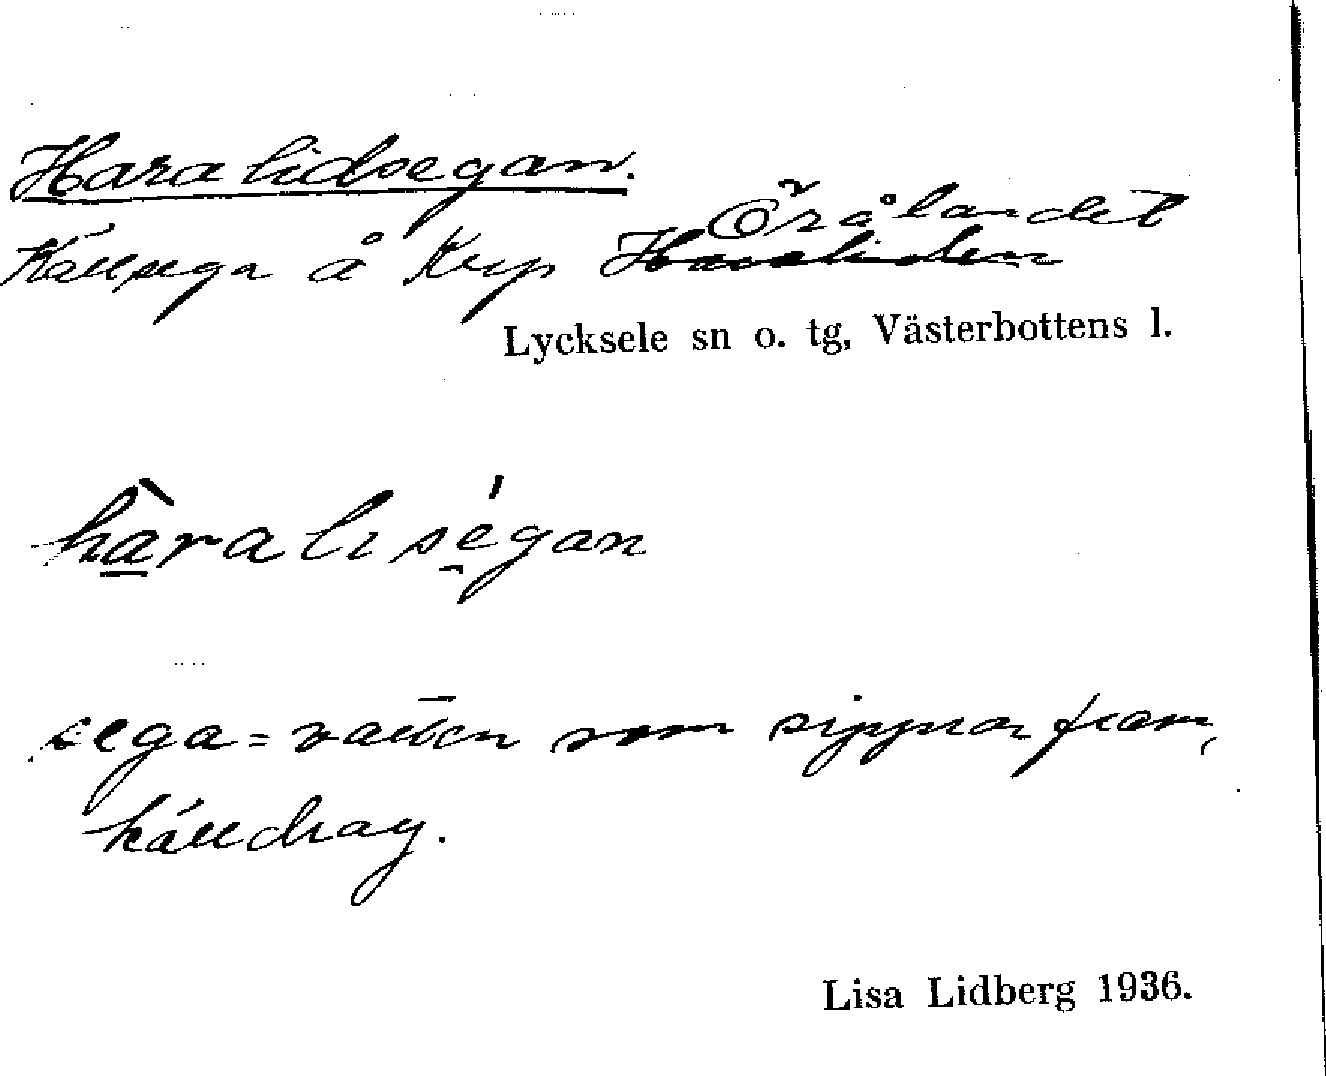 Haralidsegan.
Örålandet
Källsega å Krp Haraliden
Lycksele sn o. tg, Västerbottens l.
hàraliségan
sega = vatten som sipprar fram,
källdrag.
Lisa Lidberg 1936.